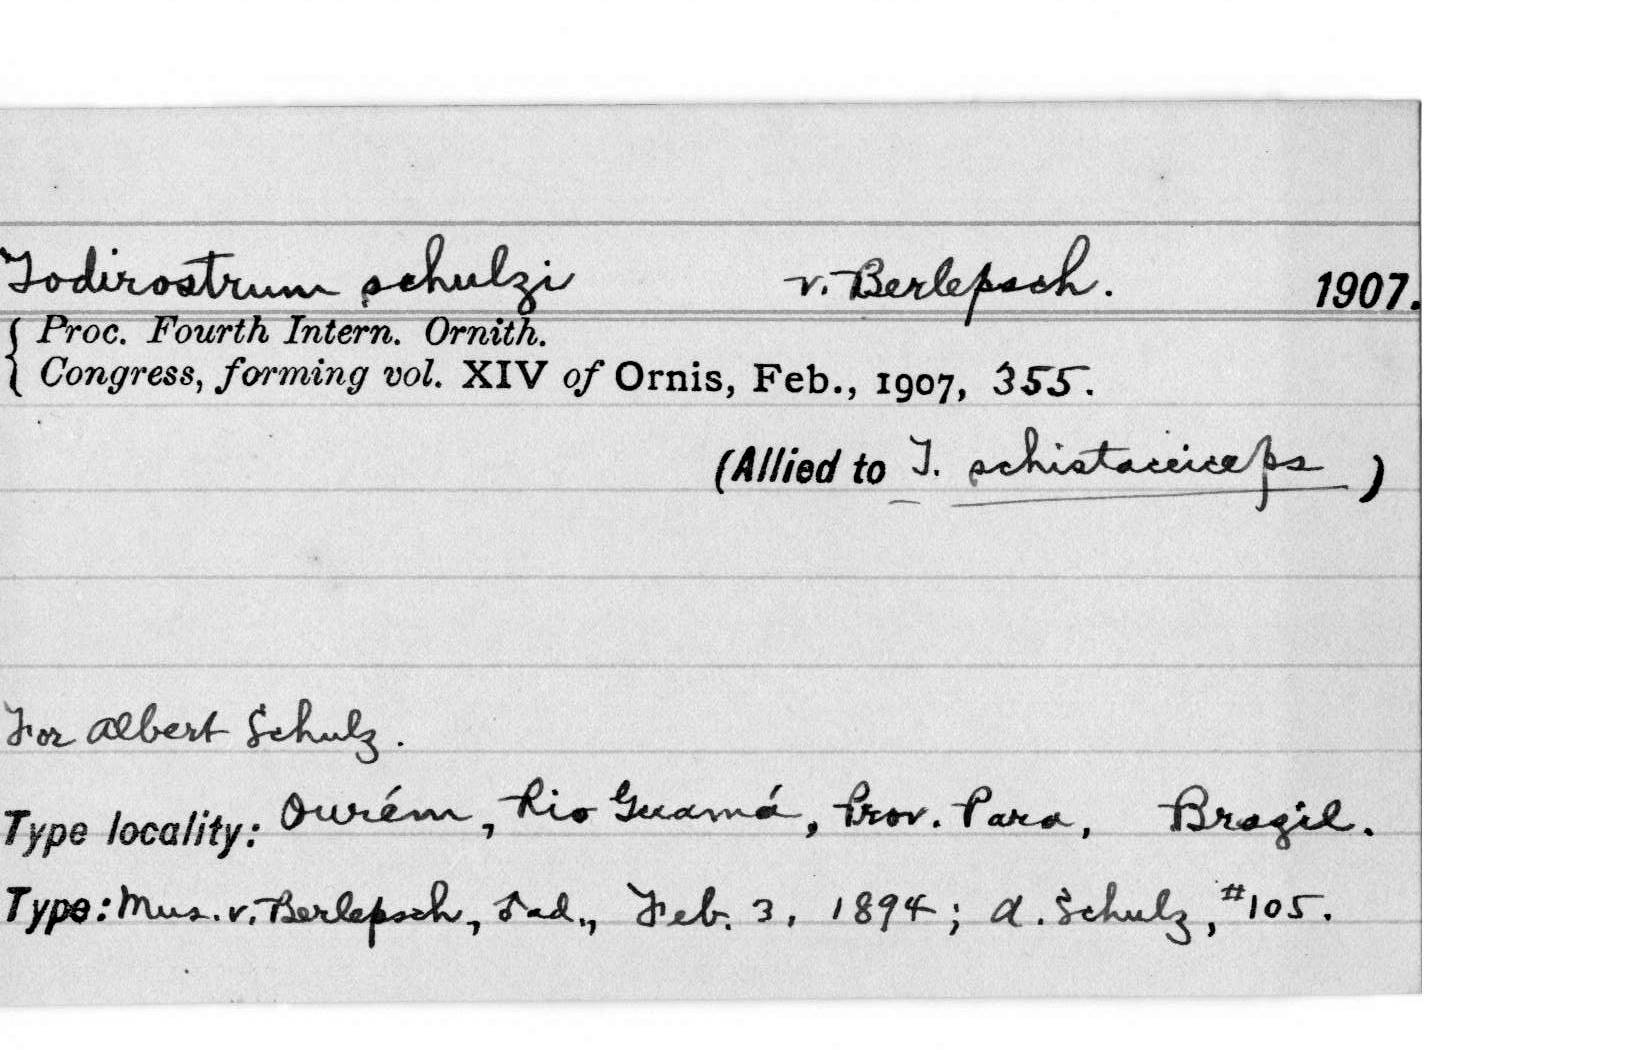 Todirostrum schulzi v. Berlepsch. 1907.
Proc. Fourth Intern. Ornith.
Congress, forming vol. XIV of Ornis, Feb., 1907, 355.
(Allied to T. schistaceiceps)
For Albert Schulz.
Type locality: Ourém, Rio Guamá, Prov. Para, Brazil.
Type: Mus. v. Berlepsch, ♂ ad., Feb. 3, 1894; A. Schulz, #105.